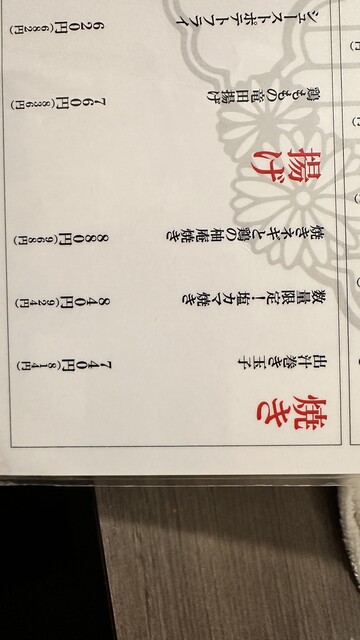 焼き
出汁巻き玉子 740円(814円)
数量限定!塩カマ焼き 840円(924円)
焼きネギと鶏の柚庵焼き 880円(968円)
揚げ
鶏ももの竜田揚げ 760円(836円)
シューストポテトフライ 620円(682円)